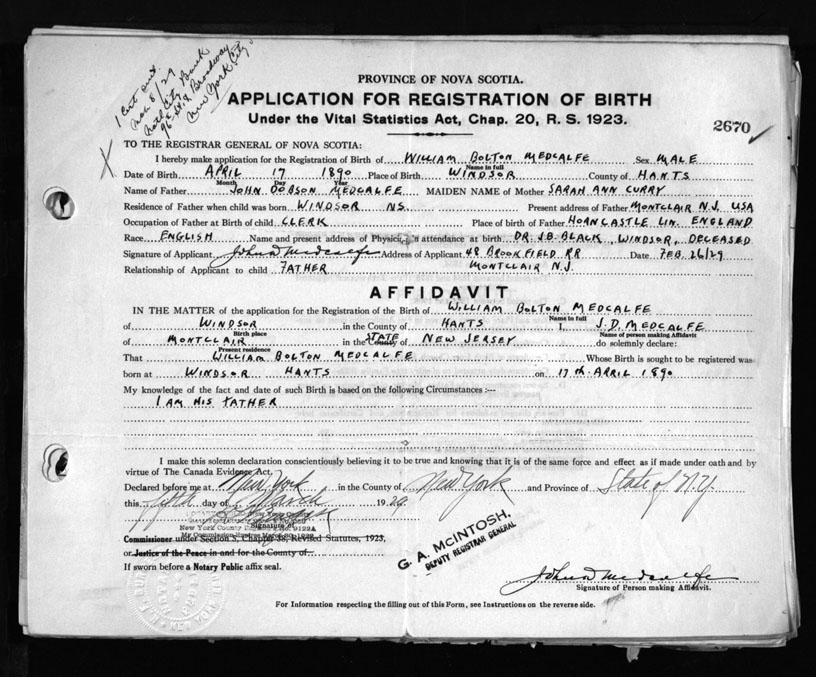 1 Cert sent
Mar 8/29
Natl City Bank
96 St & Broadway
New York City
PROVINCE OF NOVA SCOTIA.
APPLICATION FOR REGISTRATION OF BIRTH
Under the Vital Statistics Act, Chap. 20, R. S. 1923.
2670
TO THE REGISTRAR GENERAL OF NOVA SCOTIA:
I hereby make application for the Registration of Birth of WILLIAM BOLTON MEDCALFE Sex MALE
Name in full
Date of Birth APRIL 17 1890 Place of Birth WINDSOR County of HANTS
Month Day Year
Name of Father JOHN DOBSON MEDCALFE MAIDEN NAME of Mother SARAH ANN CURRY
Residence of Father when child was born WINDSOR NS. Present address of Father MONTCLAIR N.J. USA
Occupation of Father at Birth of child CLERK Place of birth of Father HORNCASTLE LIN. ENGLAND
Race ENGLISH Name and present address of Physic 'n attendance at birth DR. J.B. BLACK, WINDSOR, DECEASED
Signature of Applicant John D Medcalfe Address of Applicant 48 BROOKFIELD RR Date FEB. 26/29
Relationship of Applicant to child FATHER MONTCLAIR N.J.
AFFIDAVIT
IN THE MATTER of the application for the Registration of the Birth of WILLIAM BOLTON MEDCALFE
Name in full
of WINDSOR in the County of HANTS I, J.D. MEDCALFE
Birth place Name of person making Affidavit
of MONTCLAIR in the County STATE of NEW JERSEY do solemnly declare:
Present residence
That WILLIAM BOLTON MEDCALFE Whose Birth is sought to be registered was
born at WINDSOR HANTS on 17th APRIL 1890
My knowledge of the fact and date of such Birth is based on the following Circumstances :--
I AM HIS FATHER
I make this solemn declaration conscientiously believing it to be true and knowing that it is of the same force and effect as if made under oath and by
virtue of The Canada Evidence Act,
Declared before me at New York in the County of New York and Province of State of N.Y
this fifth day of March 1929
Signature of
New York County
Commissioner under Section 3, Chapter 38, Revised Statutes, 1923,
or Justice of the Peace in and for the County of
If sworn before a Notary Public affix seal.
G. A. McINTOSH,
DEPUTY REGISTRAR GENERAL
John D Medcalfe
Signature of Person making Affidavit.
For Information respecting the filling out of this Form, see Instructions on the reverse side.